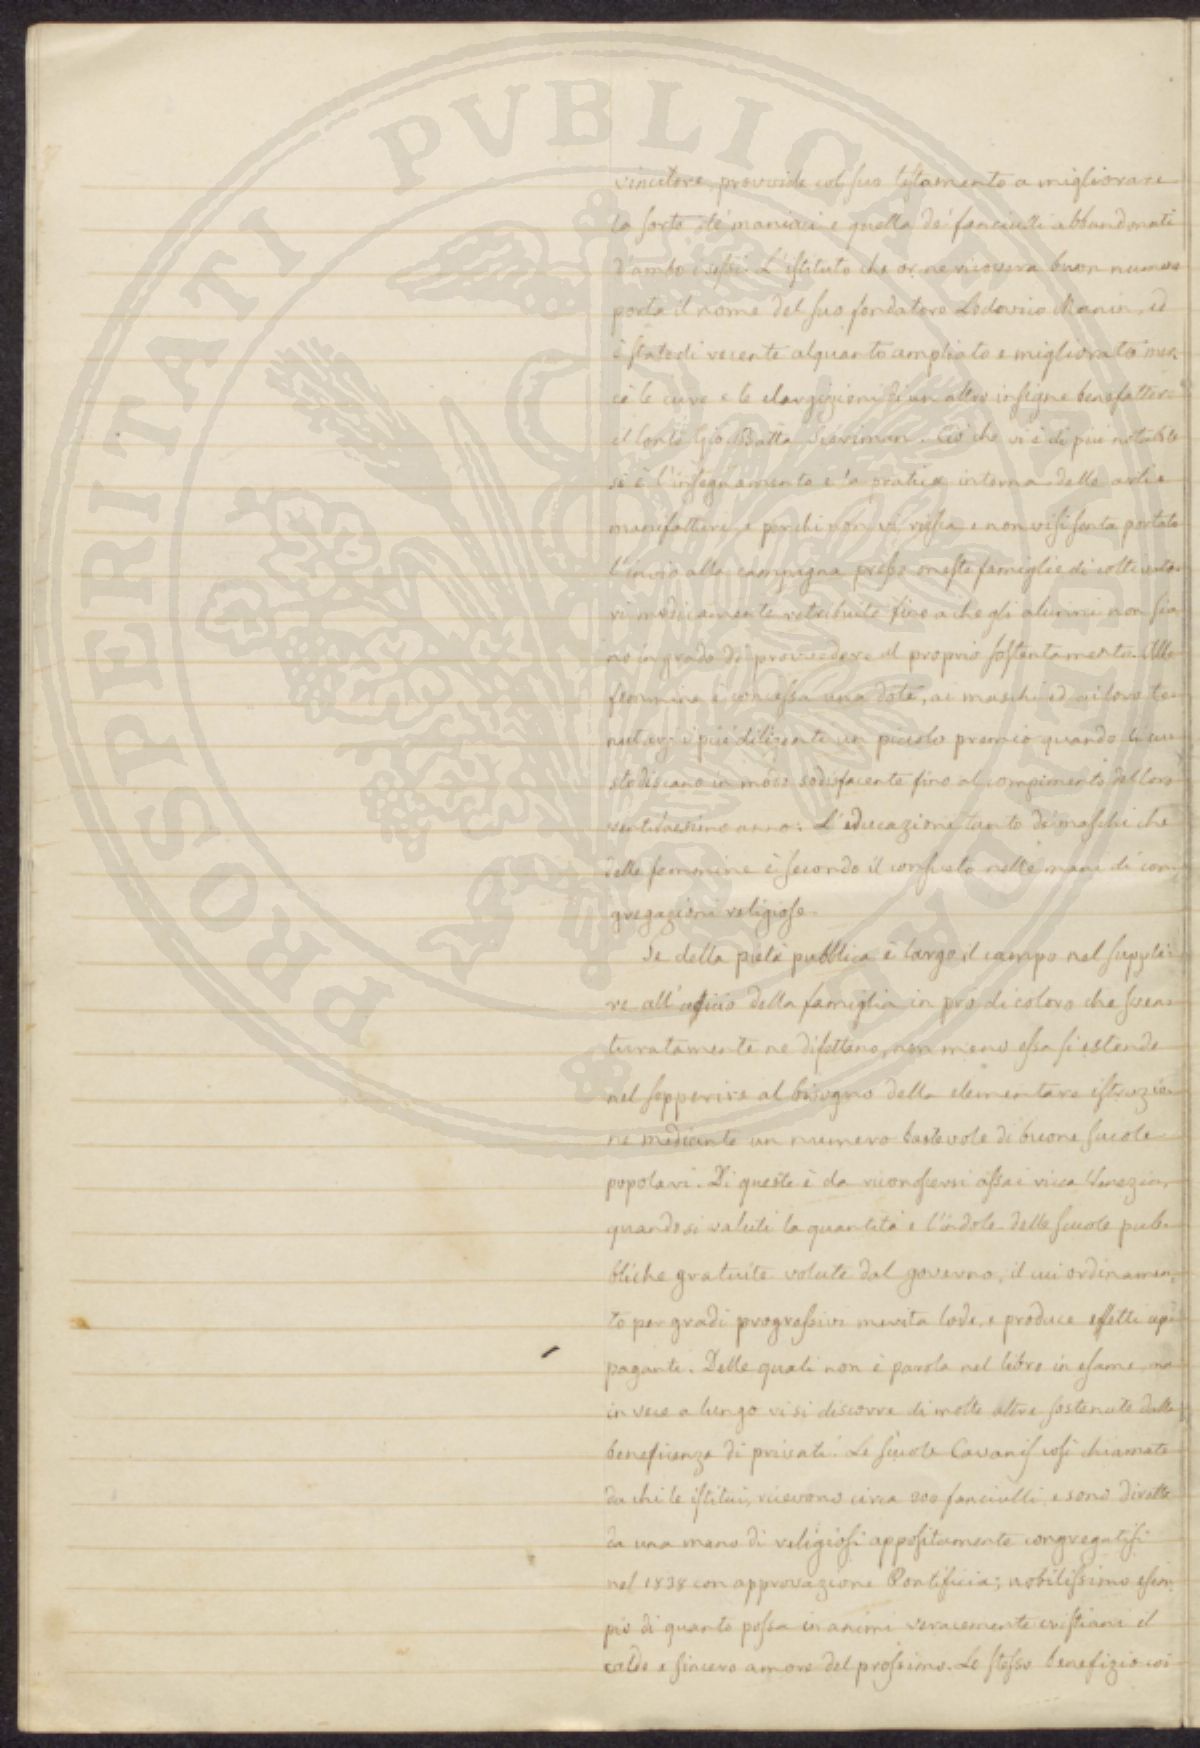 PROSPERITATI PVBLICAE
vincitore, provvide col suo testamento a migliorare
la sorte de' maniaci e quella de' fanciulli abbandonati
d'ambo i sessi. L'istituto che or ne ricovera buon numero
porta il nome del suo fondatore Lodovico Manin, ed
è stato di recente alquanto ampliato e migliorato mer-
cè le cure e le elargizioni di un altro insigne benefattore
il Conte Gio. Batta Sceriman. Ciò che vi è di più notabile
si è l'insegnamento e la pratica interna delle arti e
manifatture, e perchi non vi riesca e non visi senta portato
l'invio alla campagna presso oneste famiglie di coltivato-
ri modicamente retribuite fino a che gli alunni non sia-
no in grado di provvedere al proprio sostentamento. Alle
femmine è concessa una dote, ai maschi ed ai loro te-
nutarj i più diligenti un piccolo premio quando li cu-
stodiscano in modo sodisfacente fino al compimento del loro
anno. L'educazione tanto de' maschi che
delle femmine è secondo il consueto nelle mani di con-
gregazioni religiose.
Se della pietà pubblica è largo il campo nel supplì-
re all'uficio della famiglia in prò di coloro che sven-
turatamente ne difettano, non meno essa si estende
nel sopperire al bisogno della elementare istruzio-
ne mediante un numero bastevole di buone scuole
popolari. Di queste è da riconoscersi assai ricca Venezia,
quando si valuti la quantità e l'indole delle scuole pub-
bliche gratuite volute dal governo, il cui ordinamen-
to per gradi progressivi merita lode, e produce effetti ap-
paganti. Delle quali non è parola nel libro in esame, ma
in vece a lungo vi si discorre di molte altre sostenute dalla
beneficenza di privati. Le scuole Cavanis così chiamate
da chi le istituì, ricevono circa 200 fanciulli, e sono dirette
da una mano di religiosi appositamente congregatisi
nel 1838 con approvazione Pontificia; nobilissimo esem-
pio di quanto possa in animi veracemente cristiani il
caldo e sincero amore del prossimo. Lo stesso benefizio coi